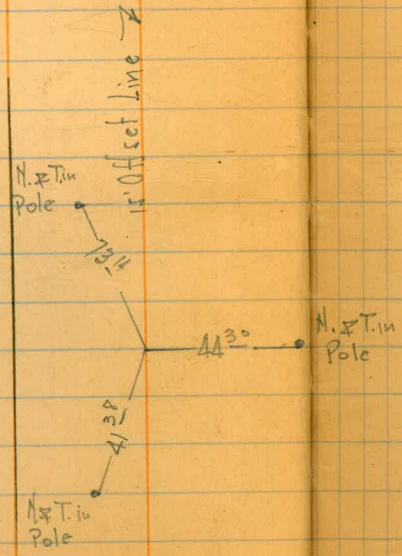 15' Offset Line
N. & T. in
Pole
73.14
44.30
N. & T. in
Pole
41.38
N & T. in
Pole